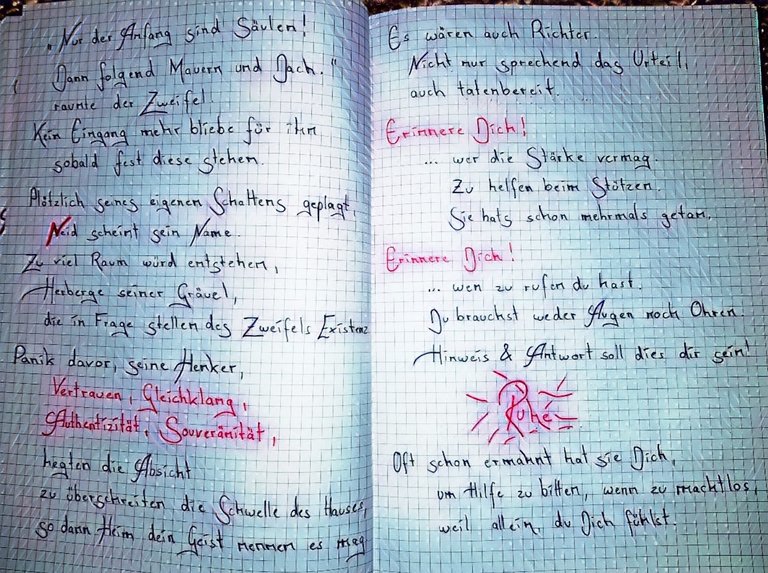 „Nur der Anfang sind Säulen!
Dann folgend Mauern und Dach."
raunte der Zweifel.
Kein Eingang mehr bliebe für ihn
sobald fest diese stehen.
Plötzlich seines eigenen Schattens geplagt,
Neid scheint sein Name.
Zu viel Raum würd entstehen,
Herberge seiner Gräuel,
die in Frage stellen des Zweifels Existenz
Panik davor, seine Henker,
Vertrauen, Gleichklang,
Authentizität, Souveränität,
hegten die Absicht
zu überschreiten die Schwelle des Hauses,
so dann Heim dein Geist nennen es mag
Es wären auch Richter.
Nicht nur sprechend das Urteil,
auch tatenbereit.
Erinnere Dich!
... wer die Stärke vermag.
Zu helfen beim Stützen.
Sie hats schon mehrmals getan.
Erinnere Dich!
... wen zu rufen du hast.
Du brauchst weder Augen noch Ohren.
Hinweis & Antwort soll dies dir sein!
Ruhe
Oft schon ermahnt hat sie Dich,
um Hilfe zu bitten, wenn zu machtlos,
weil allein, du Dich fühlst.